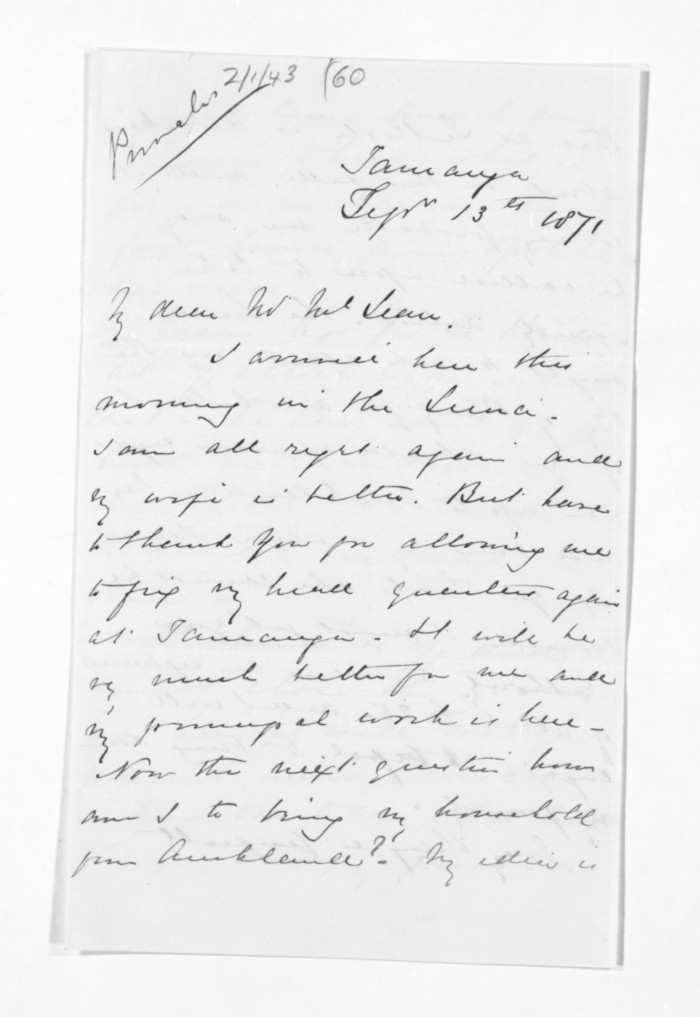 Private
2/1/43 (60
Tauranga
Sepr 13th 1871
My dear Mr McLean.
I arrived here this
morning in the Luna -
I am all right again and
my wife is better. But have
to thank you for allowing me
to fix my head quarters again
at Tauranga - It will be
so much better for me and
my principal work is here -
Now the next question how
am I to bring my household
from Auckland? - My idea is